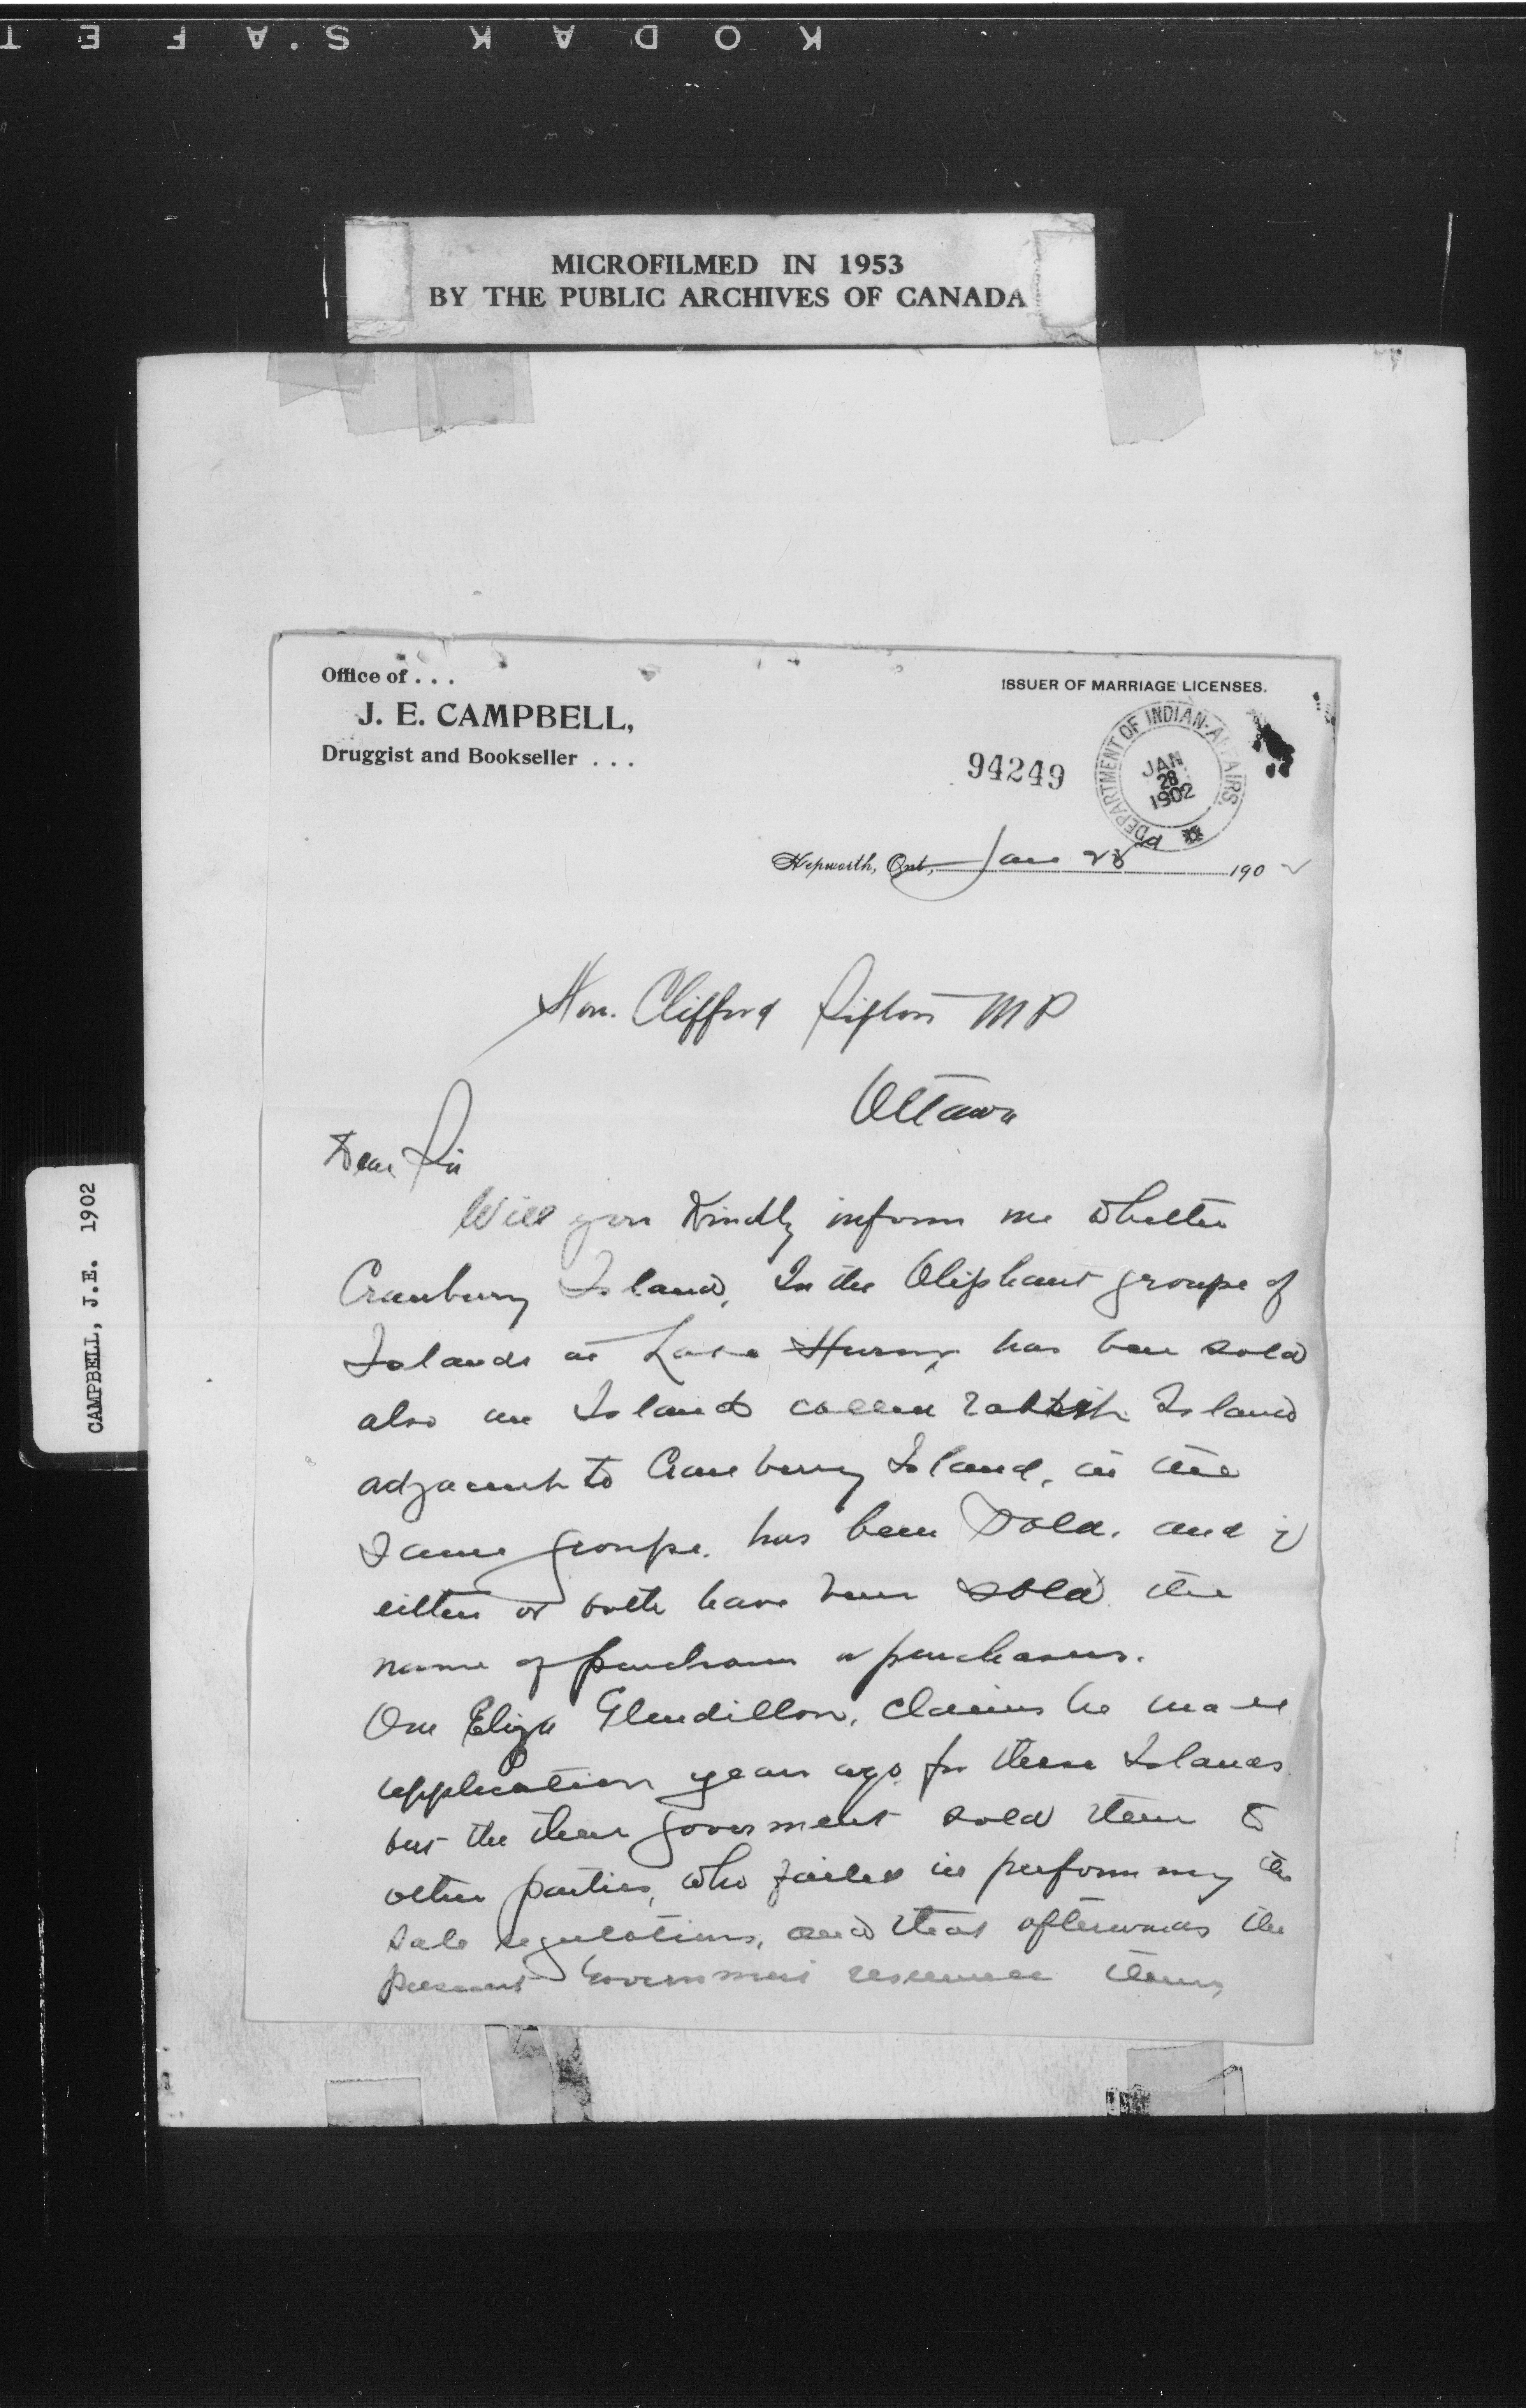 KODAK SAFET
MICROFILMED IN 1953
BY THE PUBLIC ARCHIVES OF CANADA
CAMPBELL, J.E. 1902
Office of . . .
J. E. CAMPBELL,
Druggist and Bookseller . . .
ISSUER OF MARRIAGE LICENSES.
94249
DEPARTMENT OF INDIAN-AFFAIRS.
JAN 28 1902
Hepworth, Ont, Jan 190 2
Hon. Clifford Sifton M P
Ottawa
Dear Sir
Will you Kindly inform me whether
Cranburry Island, In the Oliphant groupe of
Islands at Lake Huron, has been sold
also an Island called Island
adjacent to Cranburry Island, in the
Same groupe. has been Sold. and if
either or both have been sold the
name of purchaser or purchasers.
One Eliza Glendillon, claims he made
application years ago for these Islands
but the then goverment sold them to
other parties, who failed in performing the
Sale regulations, and that afterwards the
present Government them,